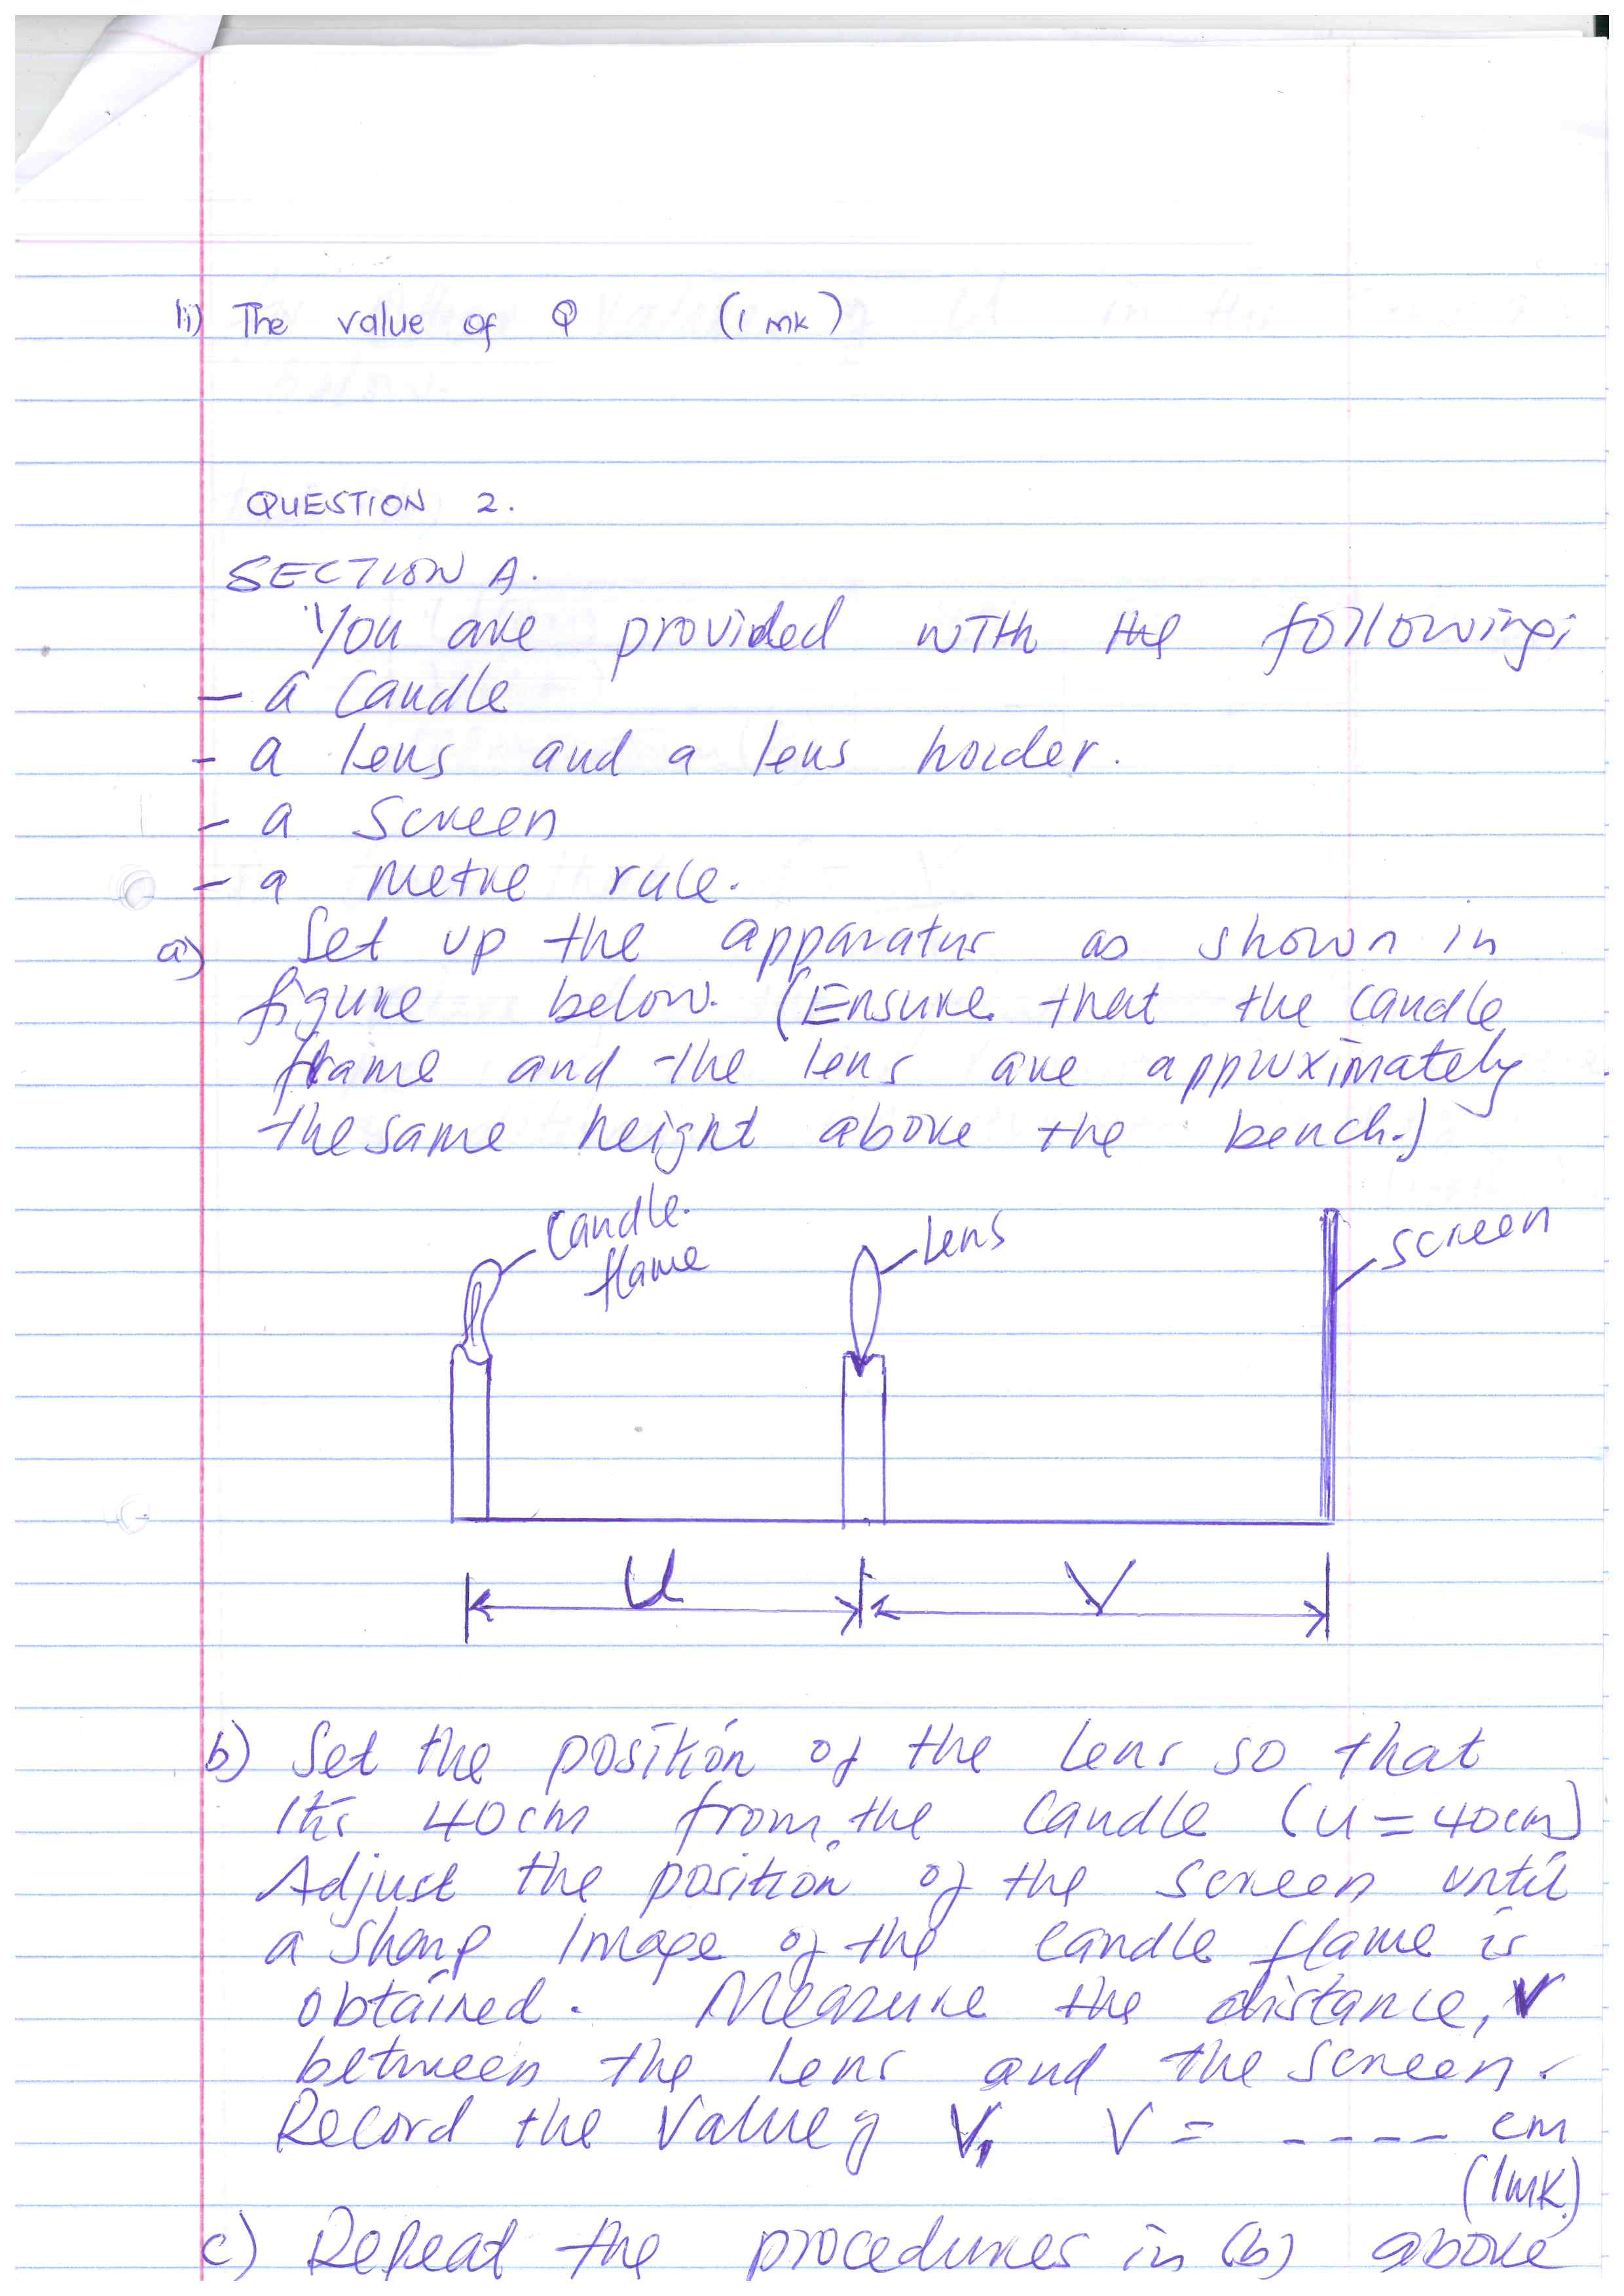 ii) The value of Q (1 mk)
QUESTION 2.
SECTION A.
You are provided with the following;
- a candle
- a lens and a lens holder.
- a screen
- a metre rule.
a) Set up the apparatus as shown in
figure below. (Ensure that the candle
frame and the lens are approximately
the same height above the bench.)
candle
flame
Lens
screen
U
V
b) Set the position of the lens so that
its 40cm from the candle (u = 40cm)
Adjust the position of the screen until
a sharp image of the candle flame is
obtained. Measure the distance, V
between the lens and the screen.
Record the value of V, V = ---- cm
(1mk)
c) Repeat the procedures in (b) above